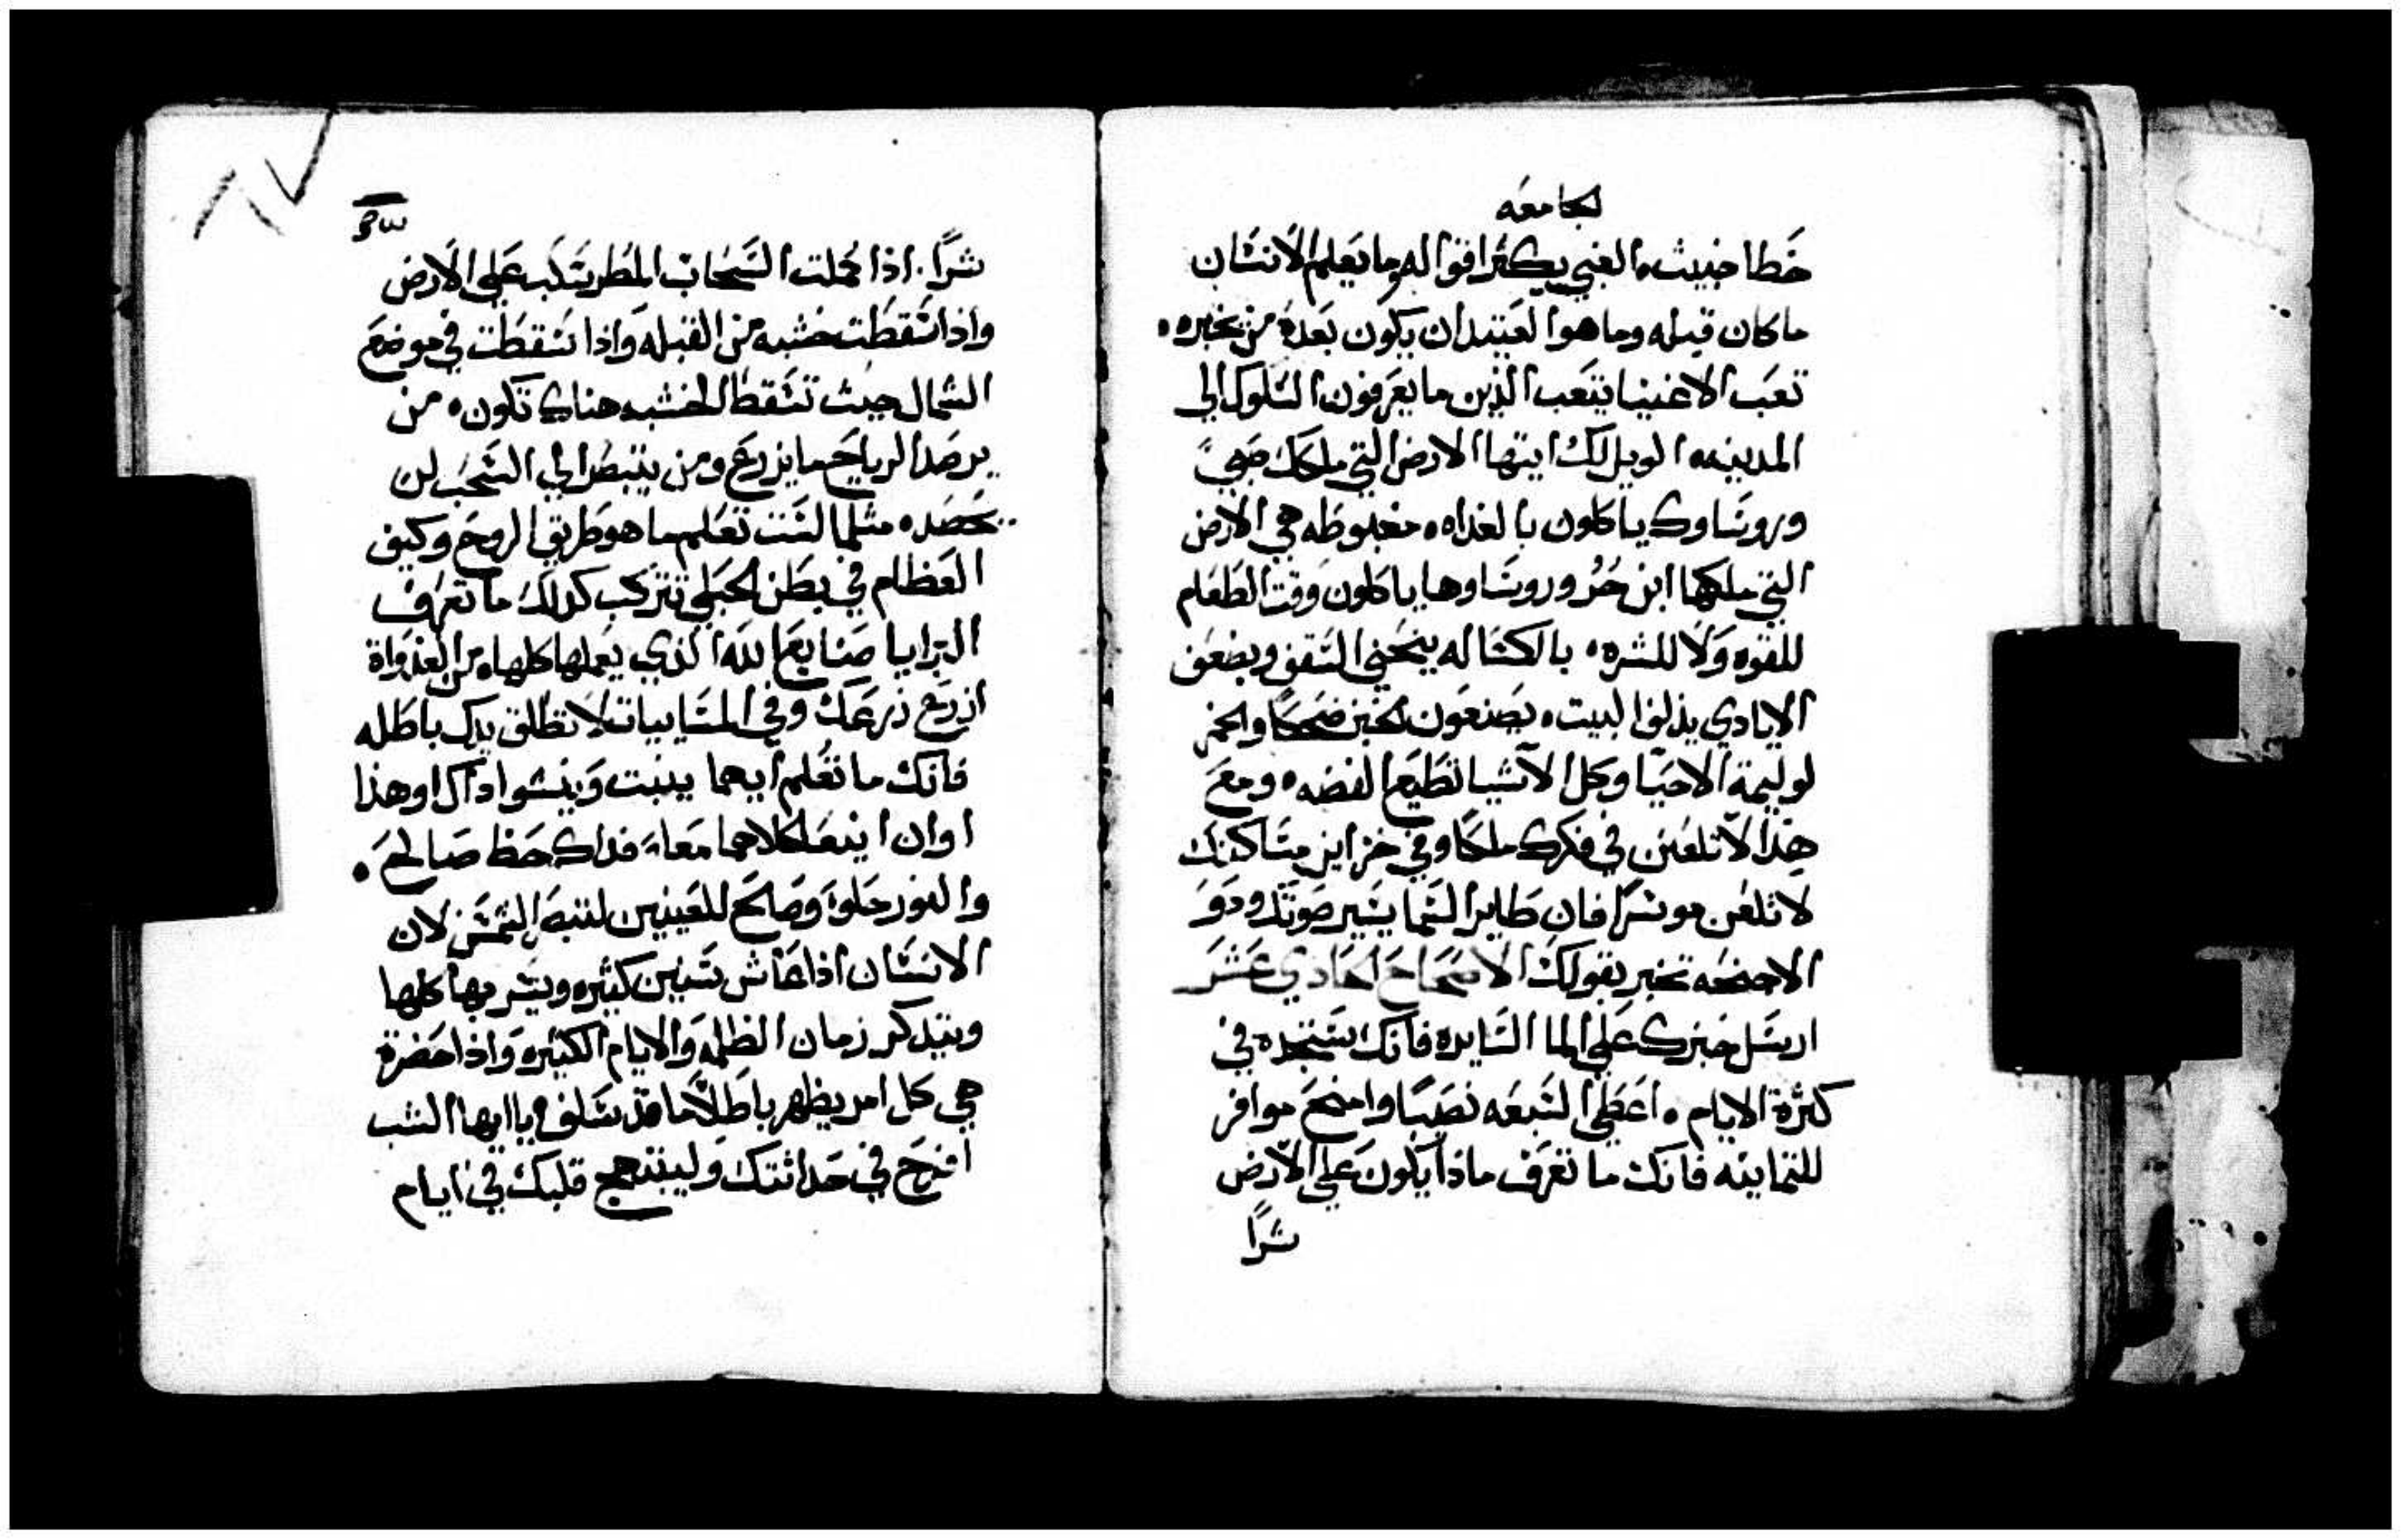 الجامعه
خطا خبيث، الغبي يكثر اقواله وما يعلم الانسان
ما كان قبله وما هوا لعتيد ان يكون بعده من يخبره،
تعب الاغنيا يتعب الذين ما يعرفون السلوك الي
المدينه، الويل لك ايتها الارض التي ملكك صبيً
وروساوك ياكلون بالغداه، مغبوطه هي الارض
التي ملكها ابن حُر وروساوها ياكلون وقت الطعام
للقوه ولا للشره، بالكساله ينحني السقف وبضعف
الايادي يذلف البيت، يصنعون الخبز ضحكًا والخمر
لوليمة الاحيا وكل الاشيا تطيع الفضه، ومع
هذا لا تلعن في فكرك ملكًا وفي خزاين مساكنك
لا تلعن موسرًا فان طاير السما يسير صوتك ودو
الاجنحه تخبر بقولك الاصحاح الحادي عشر
ارسل خبزك علي الما السايره فانك ستجده في
كثرة الايام، اعطي السبعه نصيبًا وامنح موافر
للثمانيه فانك ما تعرف ماذا يكون علي الارض
شرًا
شرًا. اذا مُلت السحاب المطر يسكب علي الارض
واذا سقطت خشبه من القبله واذا سقطت في موضع
الشمال حيث تسقط الخشبه هناك تكون، من
يرصد الرياح ما يزرع ومن ينظر الي السحب لن
يحصد، مثلما لست تعلم ما هو طريق الروح وكيف
العظام في بطن الحبلي تتركب كدلك ما تعرف
البرايا صنايع الله الذي يعملها كلها، من الغدواة
ازرع زرعك وفي المسايات لا تطلق يدك باطله
فانك ما تعلم ايهما ينبت وينشوا اداك او هذا
او ان اينعا كلاهما معا، فداك حظ صالح،
والنور حلو، وصالح للعينين لننبه الشمس لان
الانسان اذا عاش سنين كثيره ويسر بها كلها
ويتدكر زمان الظلمه والايام الكثيره واذا حضرة
هي كل امر يظهر باطلاً ما قد سلف، يا ايها الشب
افرح في حداثتك وليبتهج قلبك في ايام